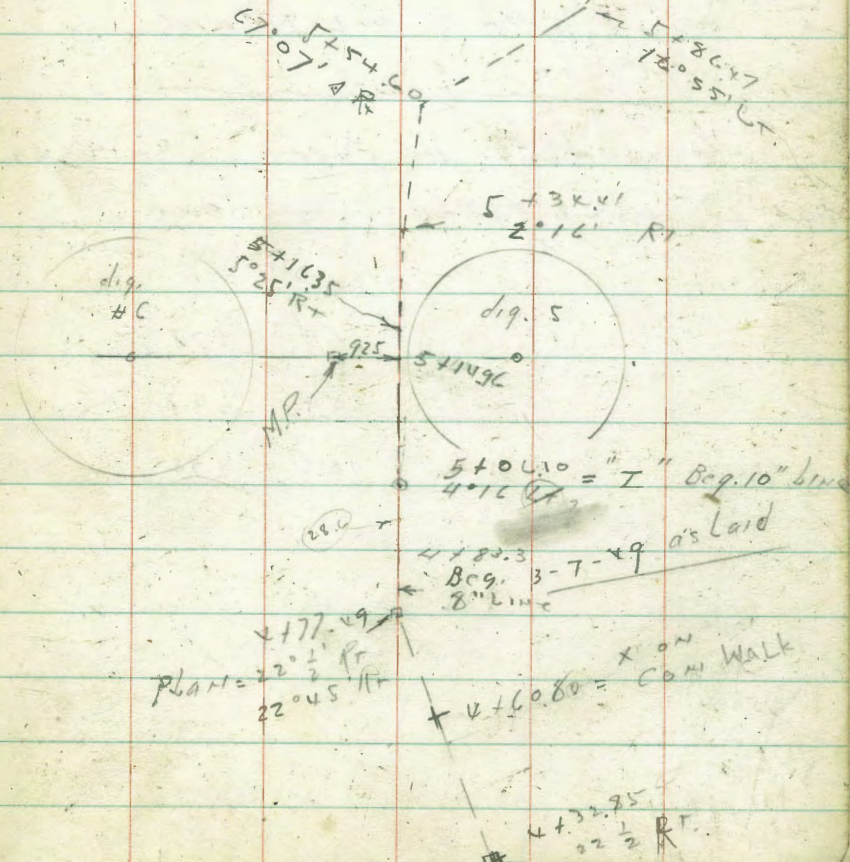 5+54.60
67°07' △ Rt
5+86.47
12°55' Lt.
5+34.41
2°16' Rt.
5+16.35
5°25' Rt
dig.
#6
dig. 5
9.25
5+14.96
M.P.
5+06.10 = "I" Beg. 10" Line
4°16
28.6
as Laid
4+83.3
Beg. 3-7-49
8" Line
4+77.49
22°½' Rt
PLAN = 22°45' Rt
4+60.80 = X ON
CON WALK
4+32.85
22½ Rt.